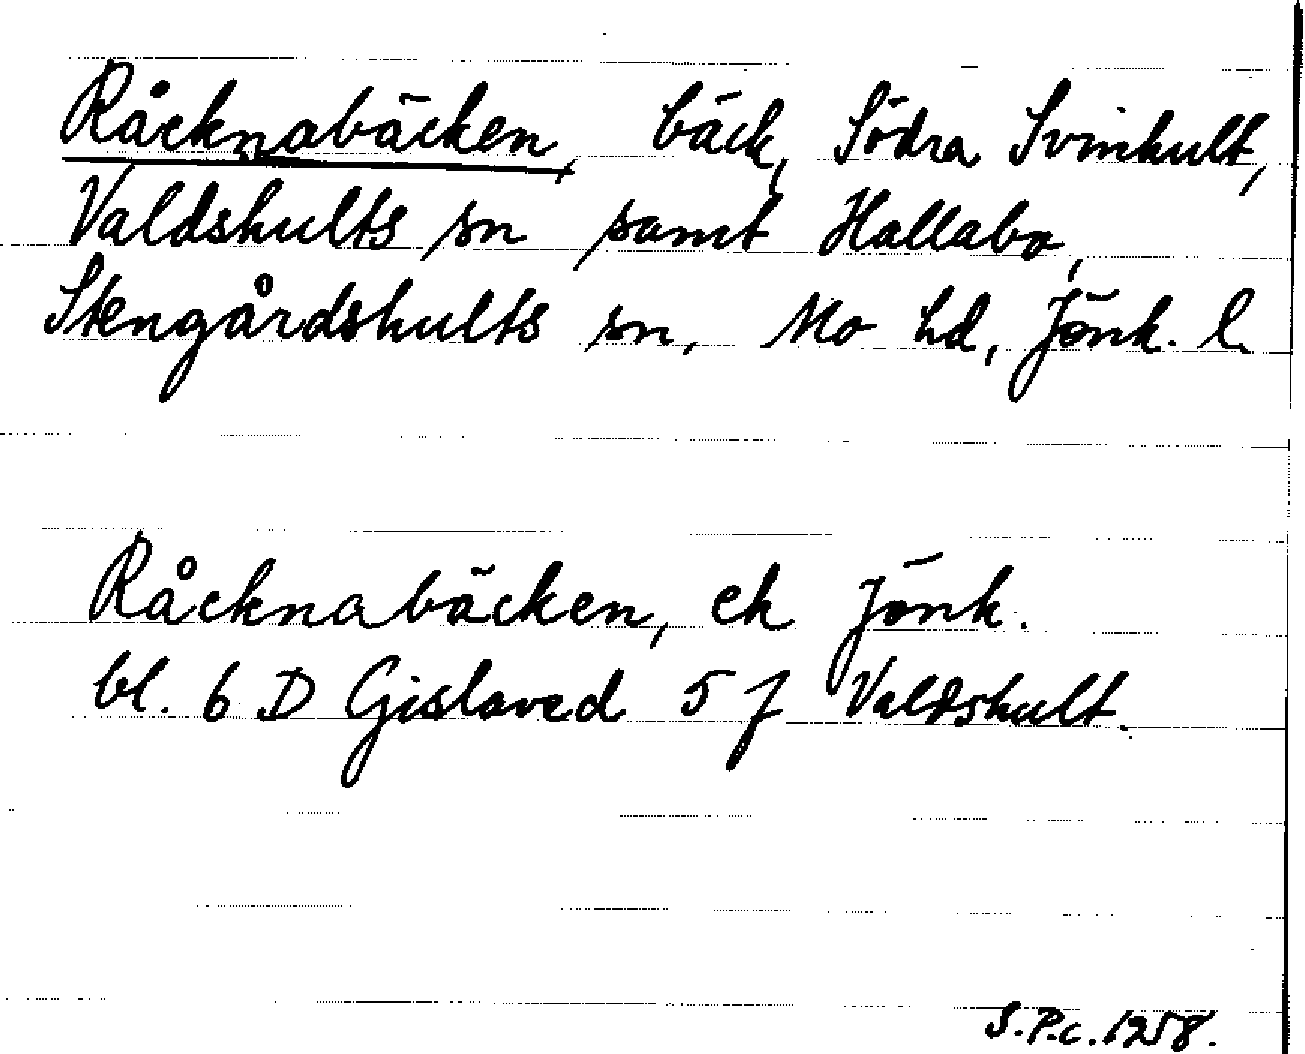 Råcknabäcken, bäck, Södra Svinhult,
Valdshults sn samt Hallabo,
Stengårdshults sn, Mo hd, Jönk. l.
Råcknabäcken, ek Jönk.
bl. 6 D Gislaved 5 f Valdshult.
S.P.c. 1258.